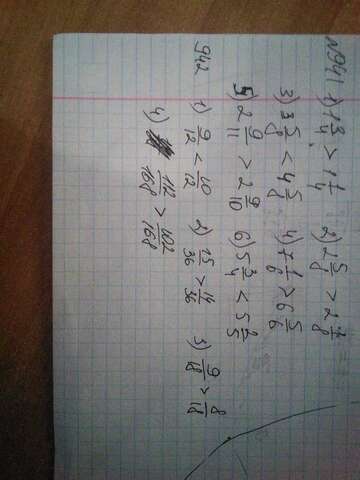 №941 1) 1 3/4 > 1 1/4 2) 2 5/8 > 2
3) 3 5/8 < 4 5/8 4) 7 1/6 > 6 5/6
5) 2 9/11 > 2 9/10 6) 5 3/4 < 5 2/5
942 1) 9/12 < 10/12 2) 15/36 > 14/36 3) 9/18 > 8/18
4) 112/168 > 102/168